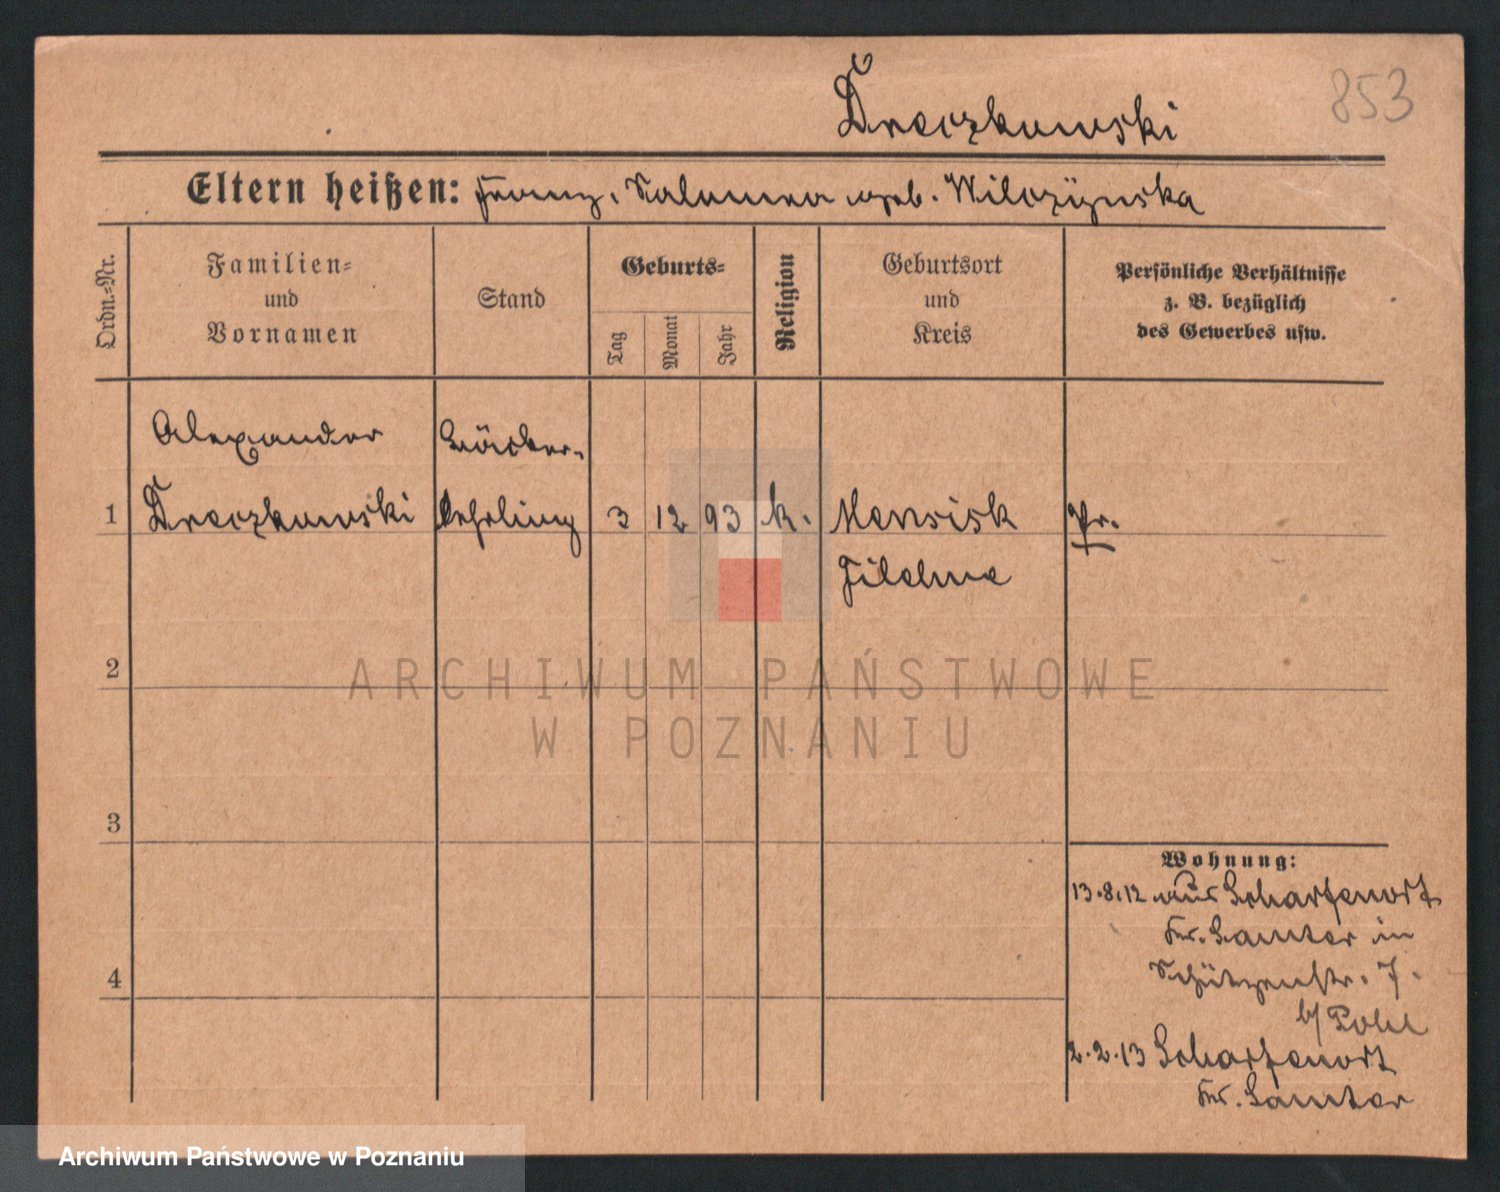 853
Dreczkowski
Eltern heißen: Franz, Salomea geb. Wilczyńska
Ordn.-Nr.
Familien-
und
Vornamen
Stand
Geburts-
Tag
Monat
Jahr
Religion
Geburtsort
und
Kreis
Persönliche Verhältnisse
z. B. bezüglich
des Gewerbes usw.
Alexander
Bäcker-
1 Dreczkowski lehrling 3 12 93 k. Mensisk Pr.
Filehne
2
ARCHIWUM PAŃSTWOWE
W POZNANIU
3
Wohnung:
13.8.12 aus Scharfenort
Kr. Samter in
Schützenstr. 7.
b/ Pohl
4
2.2.13 Scharfenort
Kr. Samter
Archiwum Państwowe w Poznaniu